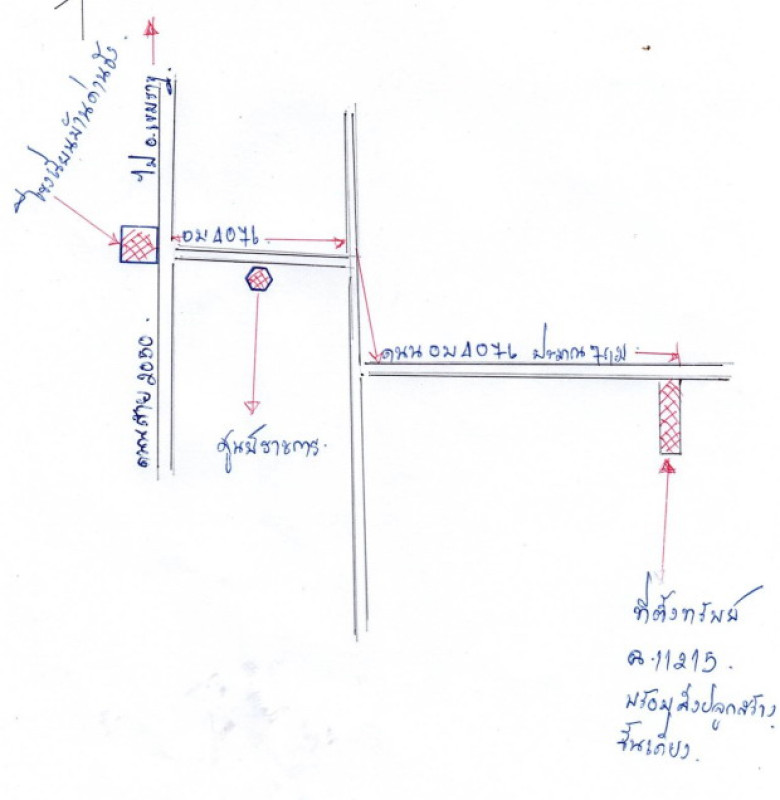 ไป อ.เขมราฐ
โรงเรียนบ้านด่านฮัง
อบ 4076
ถนนสาย 2050.
ศูนย์ราชการ.
ถนน อบ 4076 ประมาณ 7 กม
ที่ตั้งทรัพย์
ฉ.11215.
พร้อมสิ่งปลูกสร้าง
ชั้นเดียว.